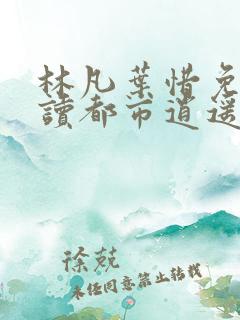 林凡葉惜免
讀都市逍遥
徐兢
未经同意禁止转载